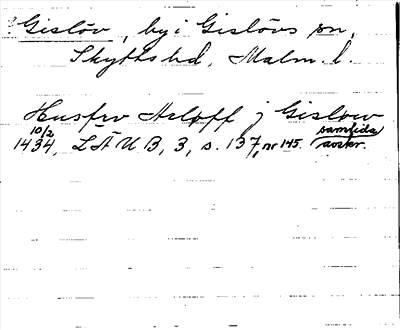 Gislöv, by i Gislövs sn,
Skytts hd, Malm. l.
Hustrv Arloff j Gislow
10/2 1434, LÄUB, 3, s. 137, nr 145. samtida avskr.